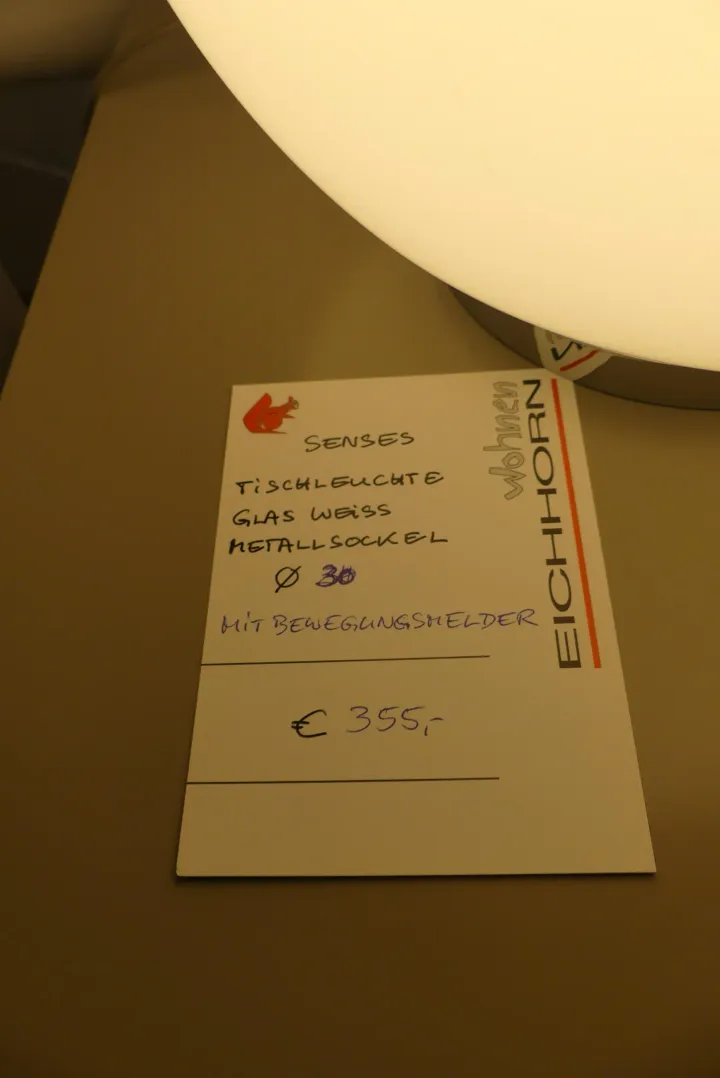 SENSES
TISCHLEUCHTE
GLAS WEISS
METALLSOCKEL
Ø 30
MIT BEWEGUNGSMELDER
€ 355,-
wohnen
EICHHORN